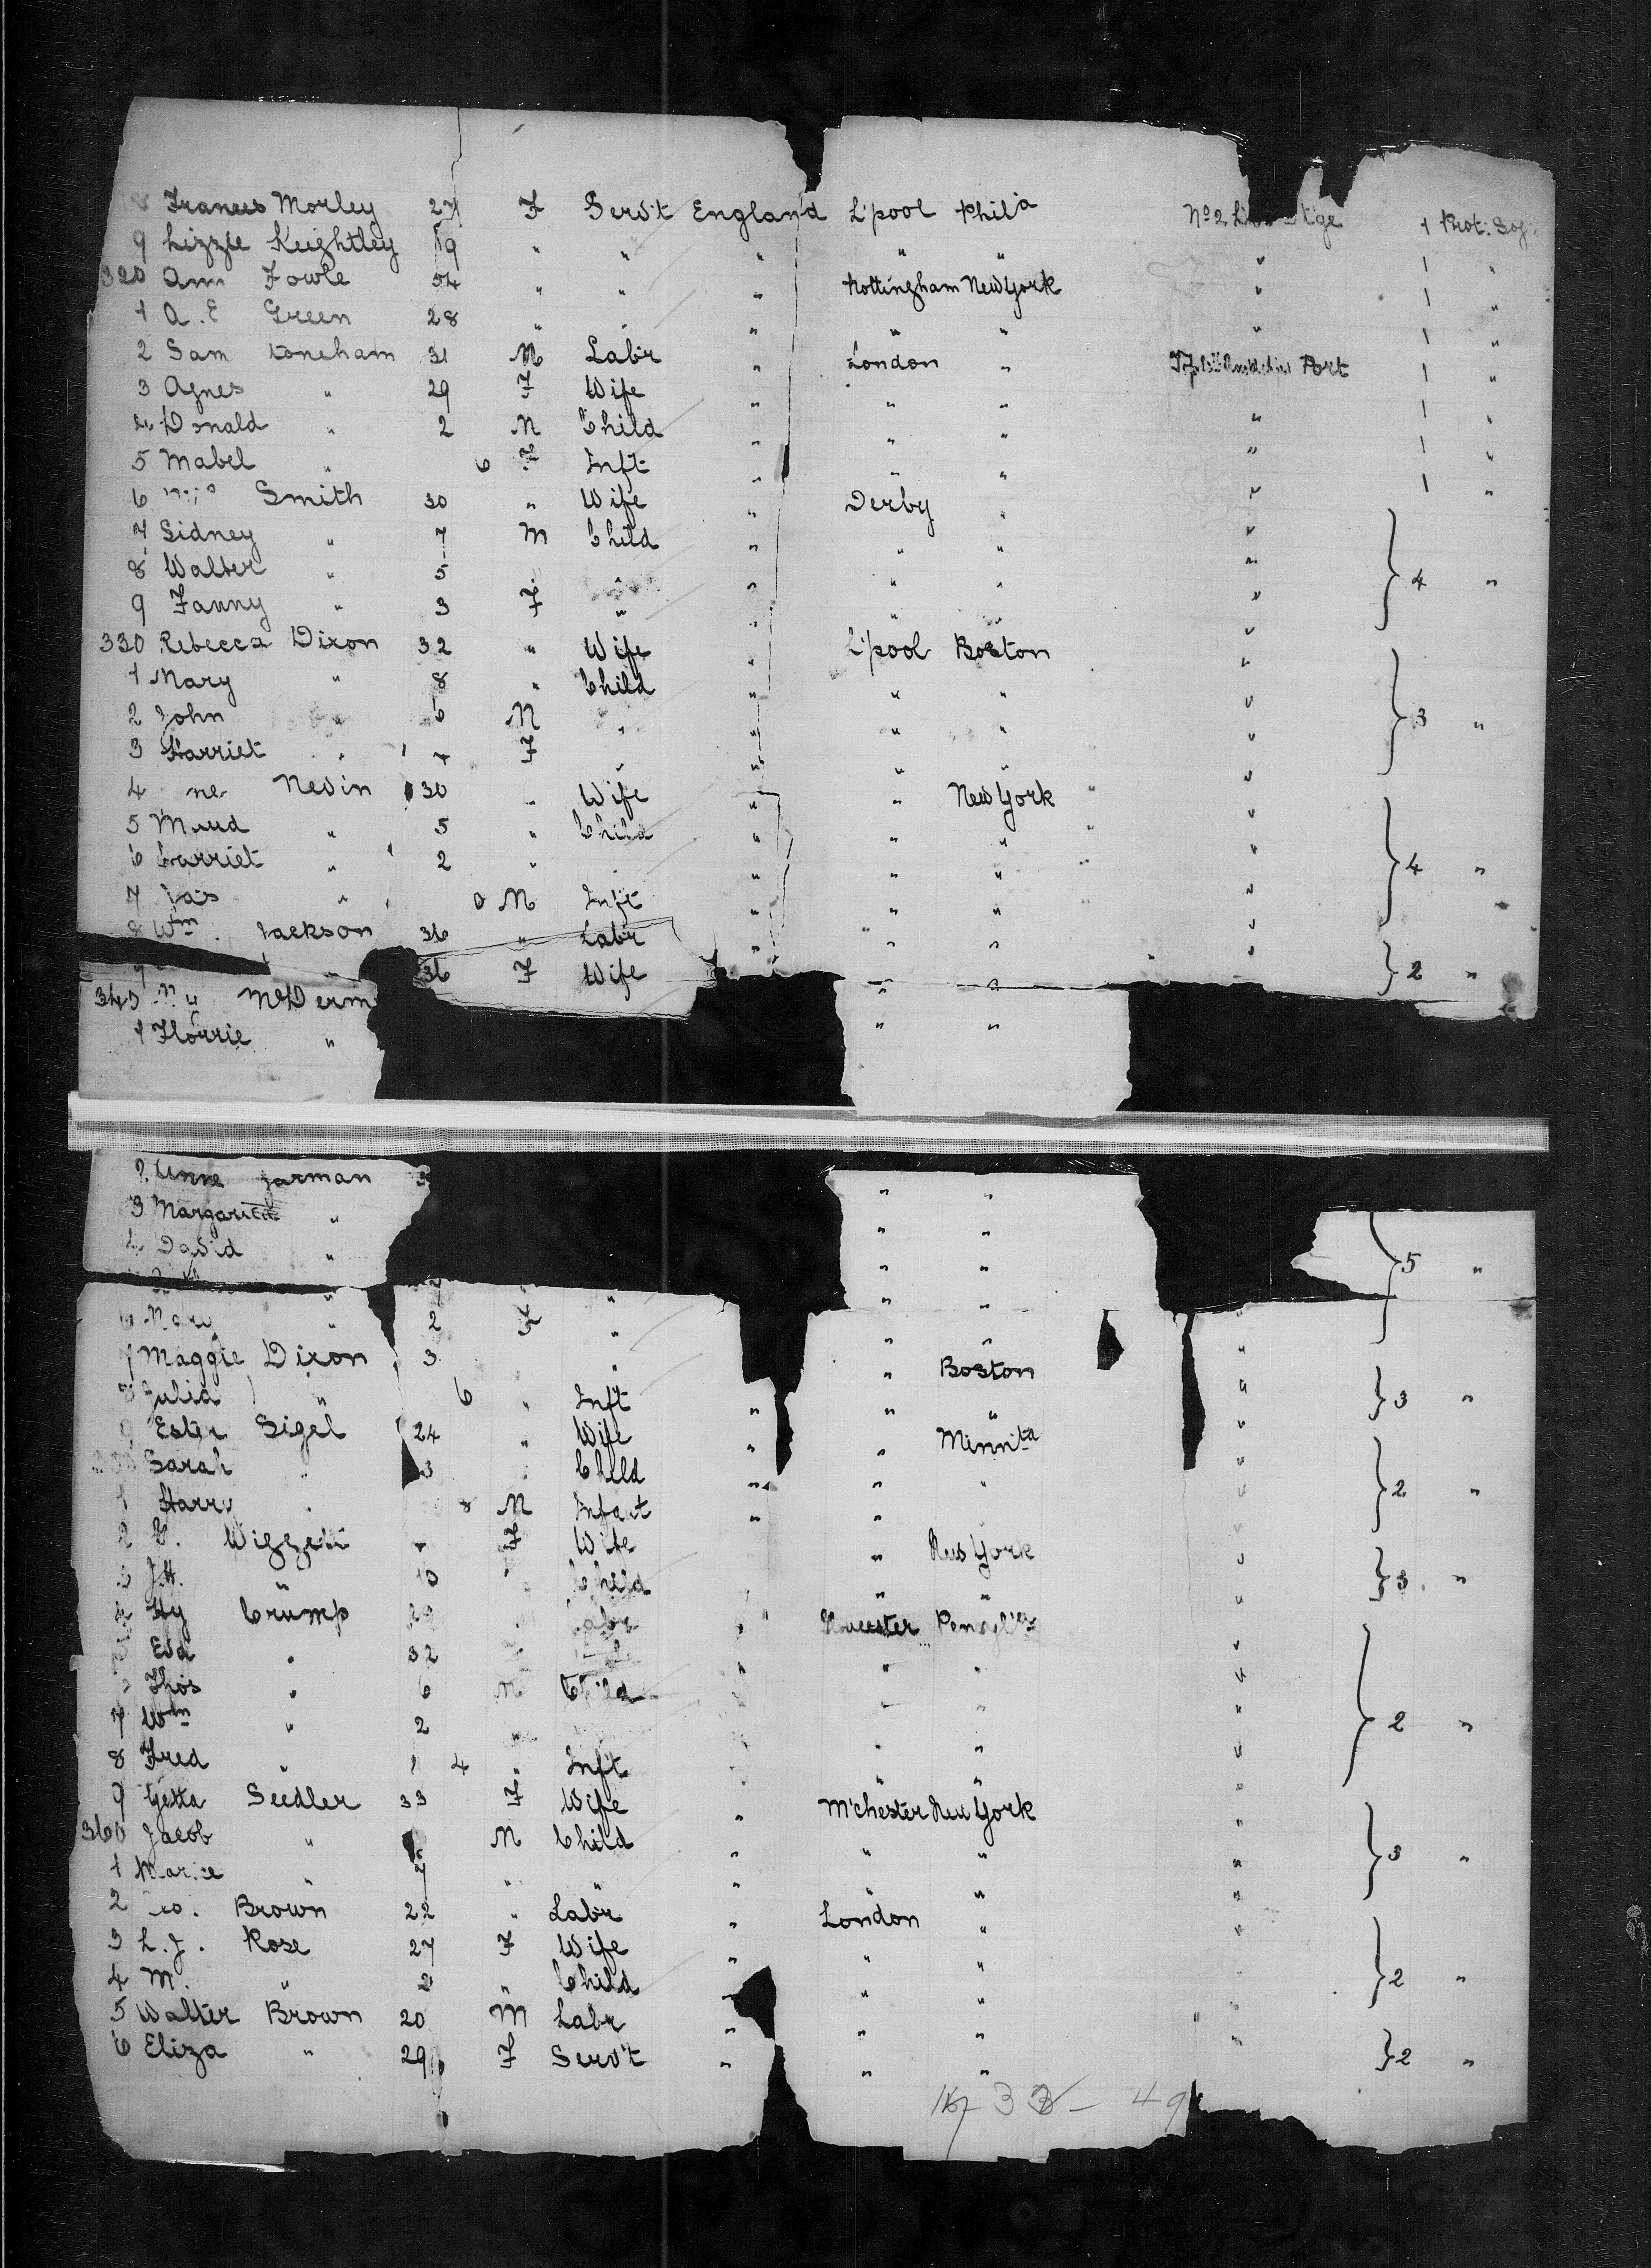 8 Frances Morley 27 F Serv't England L'pool Phila 1 Prot. Soj.
9 Lizzie Keightley 19 " " " " " " 1 "
320 Ann Fowle 54 " " " Nottingham New York " 1 "
1 A. E Green 28 " " " " " " 1 "
2 Sam Loneham 31 M Lab'r " London " Port 1 "
3 Agnes " 29 F Wife " " " " 1 "
4 Donald " 2 M Child " " " " 1 "
5 Mabel " 6 F Inft " " " " 1 "
6 Smith 30 " Wife " Derby " "
7 Sidney " 7 M Child " " " "
8 Walter " 5 " " " " " " } 4 "
9 Fanny " 3 F " " " " "
330 Rebecca Dixon 32 " Wife " L'pool Boston "
1 Mary " 8 " Child " " " "
2 John " 6 M " " " " " } 3 "
3 Harriet " F " " " " "
4 Nevin 30 " Wife " " New York "
5 Maud " 5 " Child " " " "
6 Harriet " 2 " " " " " } 4 "
7 Jas " M Inft " " " "
8 Wm. Jackson 36 " Labr " " " "
" 36 F Wife " " } 2 "
340 McDerm
1 Florrie " " "
2 Anne Jarman 3 " "
3 Margaret " " "
4 David " " " } 5 "
" " " "
6 Mary " 2 F " " " "
7 Maggie Dixon 3 " " Boston "
8 Julia " 6 " Inft " " " " } 3 "
9 Ester Sigel 24 " Wife " " Minnita "
Sarah " 3 Child " " " " } 2 "
1 Harry " 8 M Infant " " "
2 F Wife " New York "
3 J.H. " 10 " Child " " " } 3 "
4 Hy Crump Labr " "
Eva " 32 " " " "
Thos " 6 M Child " " "
7 Wm " 2 " " " } 2 "
8 Fred " 4 " Inft " " "
9 Getta Seedler 33 F Wife " M'chester New York "
360 Jacob " M Child " " " " } 3 "
1 " 7 " " " " " "
2 Brown 22 " Labr " London " "
3 L. J. Rose 27 F Wife " " "
4 M. " 2 " Child " " " } 2 "
5 Walter Brown 20 M Labr " " " "
6 Eliza " 29 F Serv't " " " } 2 "